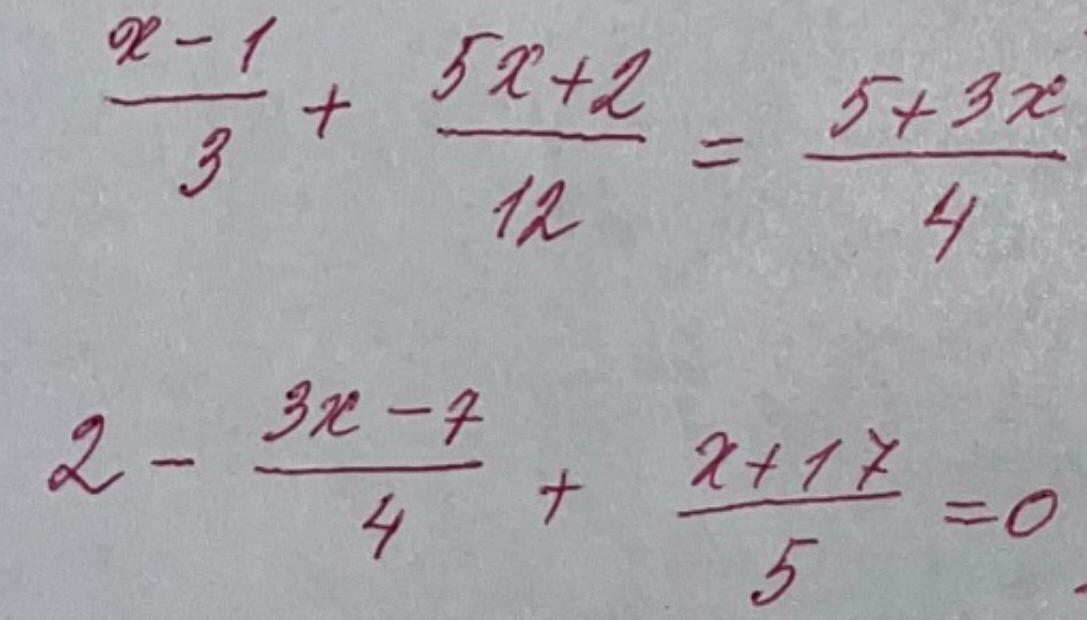 (x-1)/3 + (5x+2)/12 = (5+3x)/4
2 - (3x-7)/4 + (x+17)/5 = 0